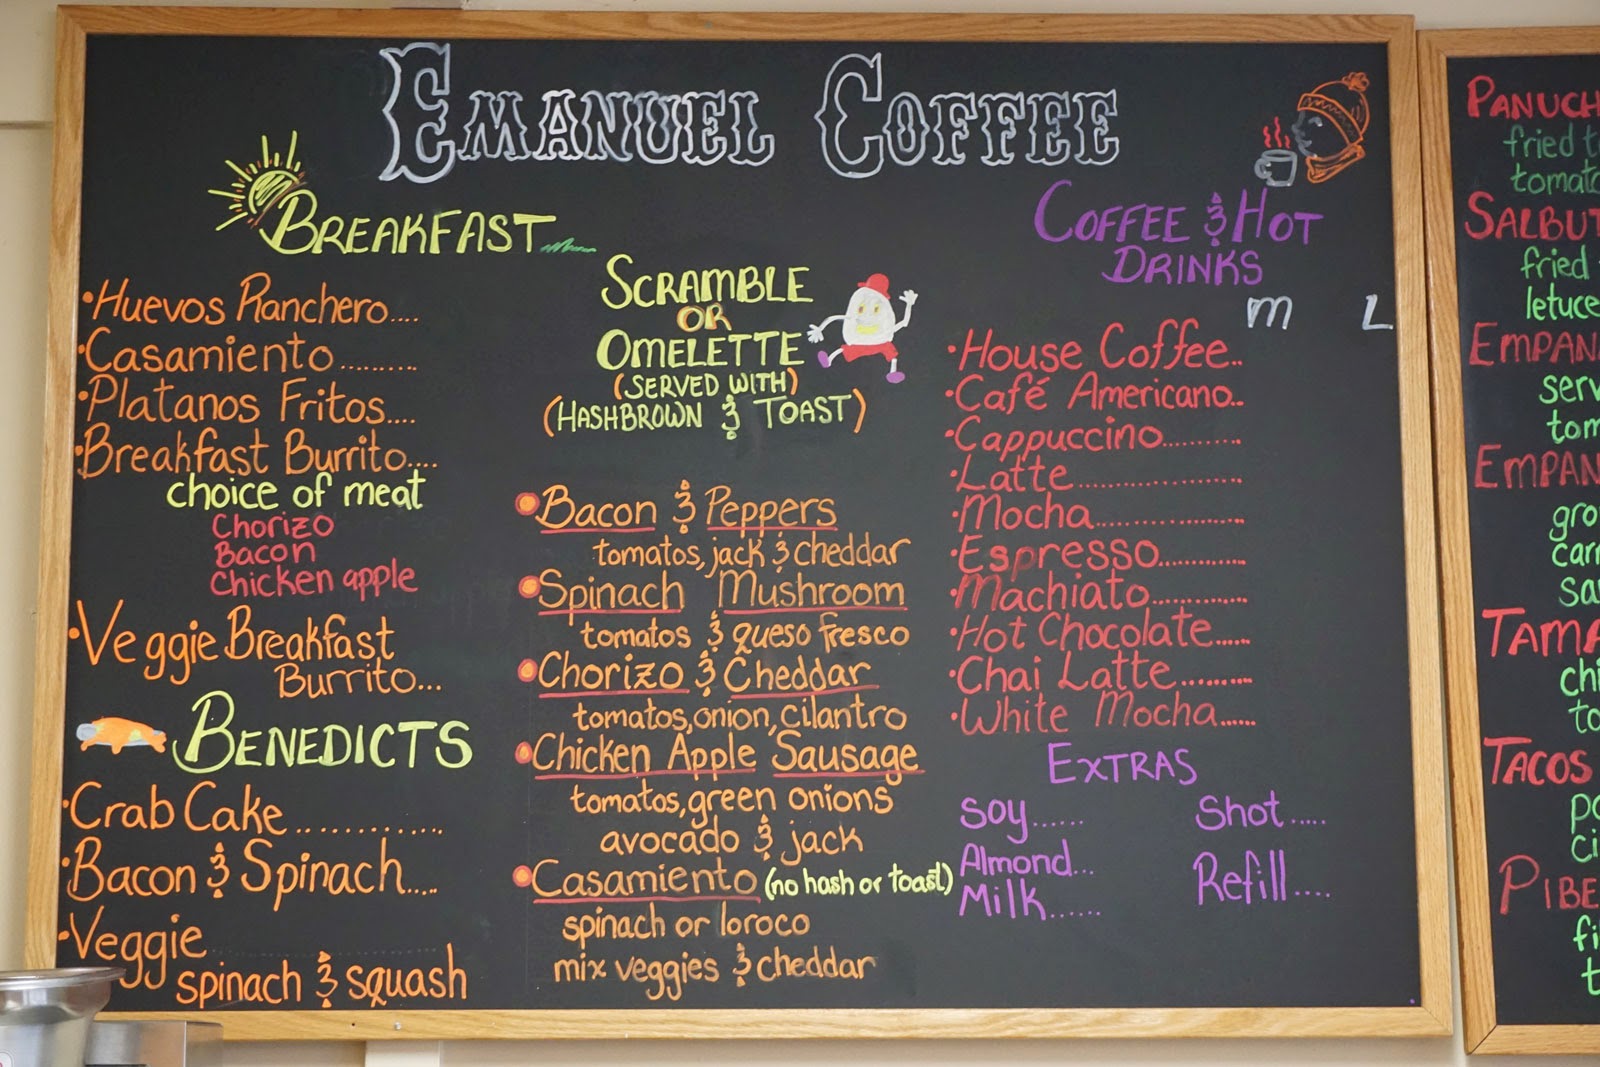 EMANUEL COFFEE
BREAKFAST
•Huevos Ranchero....
•Casamiento.........
•Platanos Fritos....
•Breakfast Burrito....
choice of meat
Chorizo
Bacon
Chicken apple
•Veggie Breakfast
Burrito...
BENEDICTS
•Crab Cake.............
•Bacon & Spinach.....
•Veggie
spinach & squash
SCRAMBLE
OR
OMELETTE
(SERVED WITH)
(HASHBROWN & TOAST)
Bacon & Peppers
tomatos, jack & cheddar
Spinach Mushroom
tomatos & queso fresco
Chorizo & Cheddar
tomatos, onion, cilantro
Chicken Apple Sausage
tomatos, green onions
avocado & jack
Casamiento (no hash or toast)
spinach or loroco
mix veggies & cheddar
COFFEE & HOT
DRINKS
m L
•House Coffee..
•Café Americano..
•Cappuccino.........
•Latte..................
•Mocha.................
•Espresso............
•Machiato............
•Hot Chocolate......
•Chai Latte..........
•White Mocha......
EXTRAS
Soy...... Shot.....
Almond... Refill....
Milk......
PANUCH
fried t
tomato
SALBUT
fried
letuce
EMPANA
serv
tom
EMPAN
gro
carr
sa
TAMA
chi
to
TACOS
po
ci
PIBE
fi
t